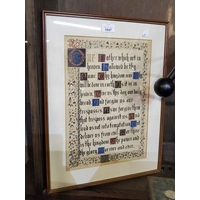 Father which art in
heaven Hallowed be thy
Name Thy kingdom come
will be done in earth as it is in
heaven Give us this day our daily
bread And forgive us our
trespasses As we forgive them
that trespass against us And
lead us not into temptation But
deliver us from evil For thine
is the kingdom the power and
the glory For ever and ever